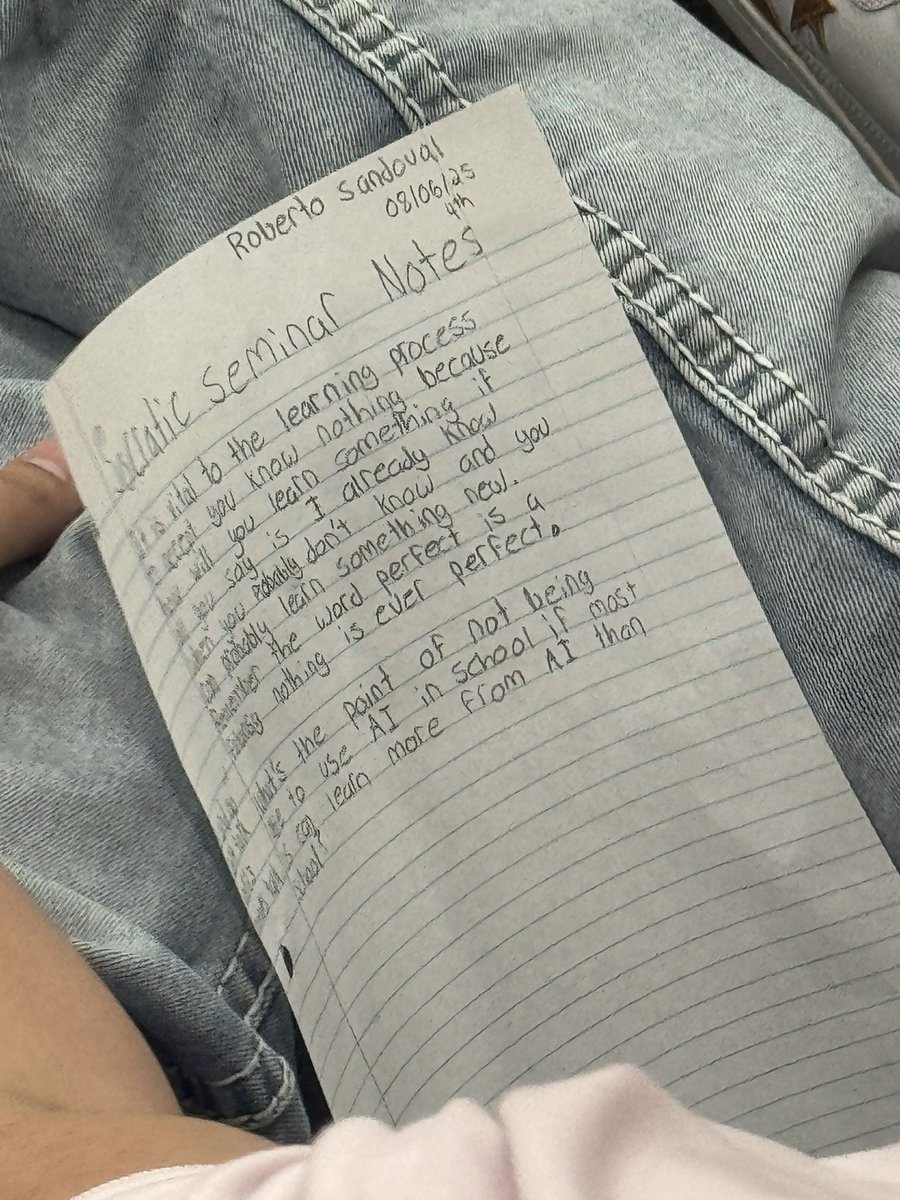 Roberto Sandoval
08/06/25
4th
Socratic Seminar Notes
is vital to the learning process
accept you know nothing because
how will you learn something if
all you say is I already know
when you probably don't know and you
can probably learn something new.
Remember the word perfect is a
nothing is ever perfect.
What's the point of not being
to use AI in school if most
kids can learn more from AI than
school?